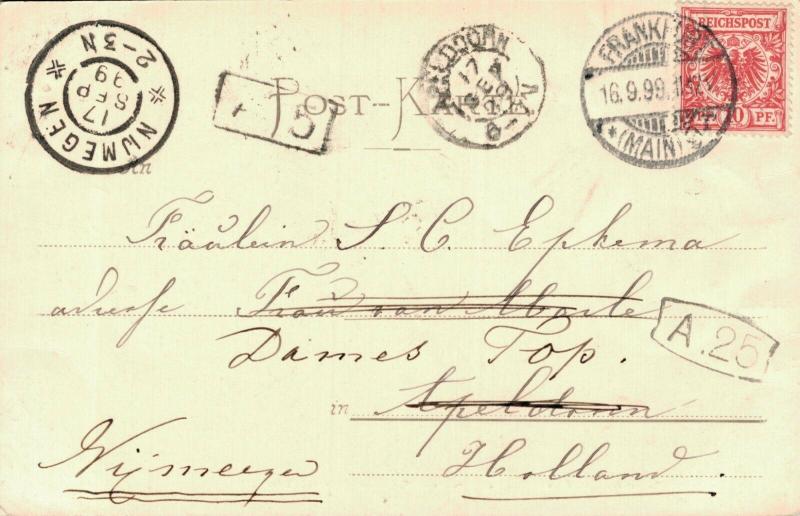 REICHSPOST
10 PF.
FRANKFURT
16.9.99.
* (MAIN)
APELDOORN
17 SEP 99
NIJMEGEN
17 SEP 99
2-3N
5
POST-KARTE
Fräulein S. C. Epkema
adresse Frau van Marle
A.25
Dames Top.
in Apeldoorn
Nijmeegen Holland.